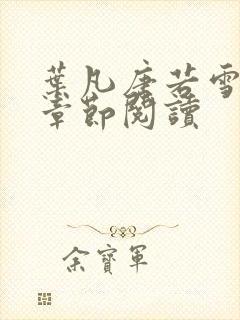 葉凡唐若雪
章節閱讀
余寶軍